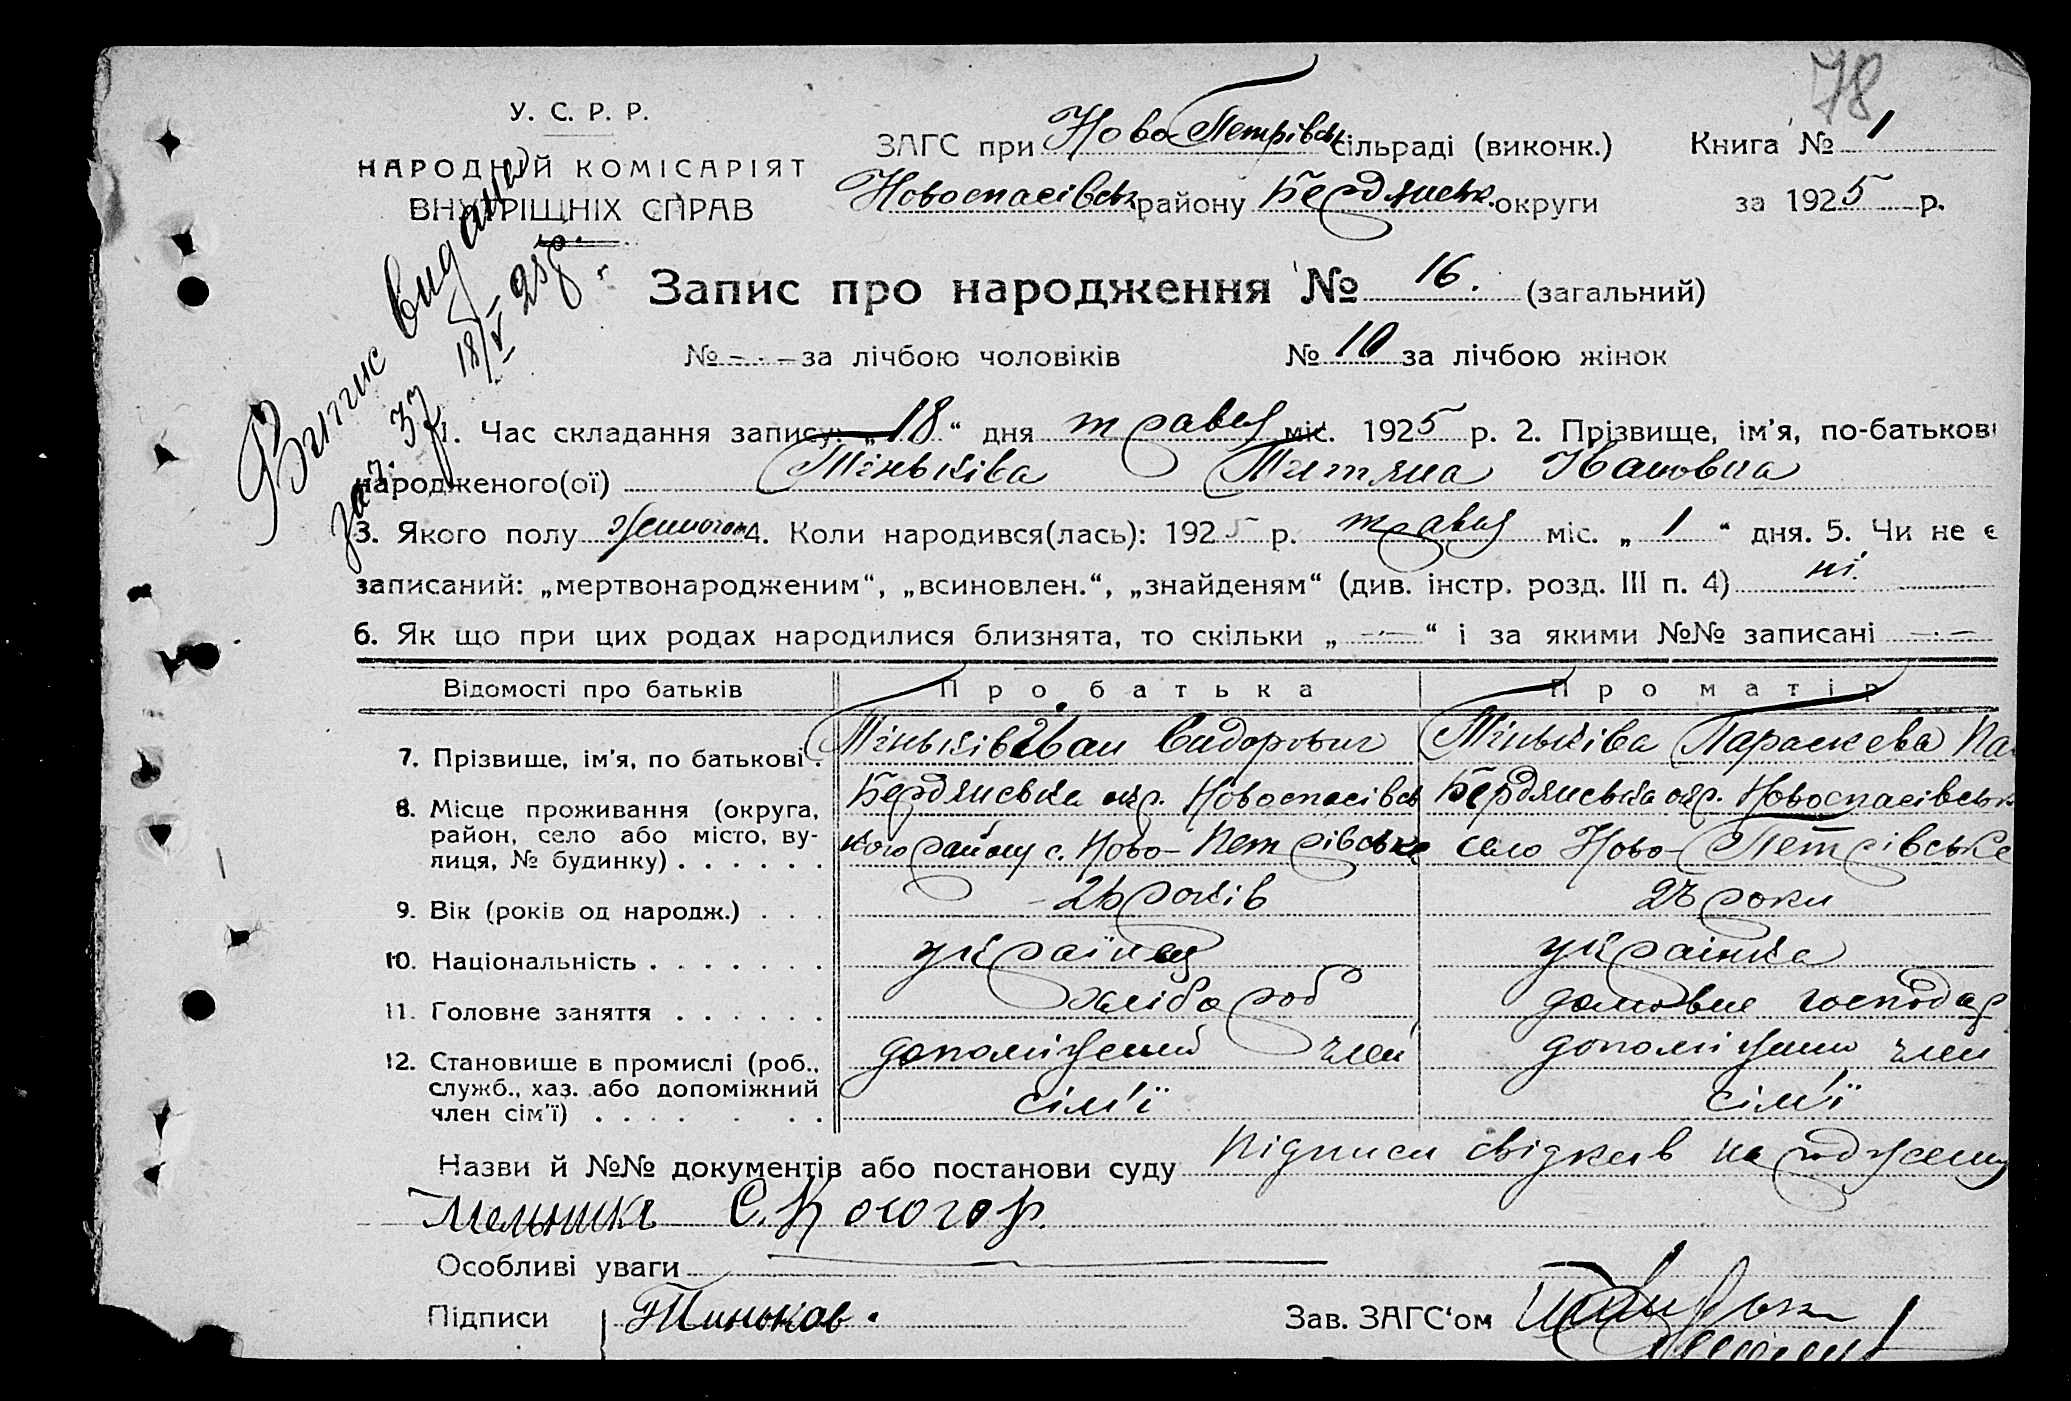 78
У. С. Р. Р.
НАРОДНІЙ КОМІСАРІЯТ
ВНУТРІШНІХ СПРАВ
ЗАГС при Ново Петрівськ сільраді (виконк.) Книга № 1
Новоспасівськ району Бердянськ. округи за 1925 р.
Випис видано
18/V 25 р.
за № 37
Запис про народження № 16. (загальний)
№ - · - за лічбою чоловіків № 10 за лічбою жінок
1. Час складання запису: „18“ дня травня міс. 1925 р. 2. Прізвище, ім'я, по-батькові
народженого(ої) Тіньківа Тятяна Івановна
3. Якого полу жіночого 4. Коли народився(лась): 1925 р. травня міс. „ 1 “ дня. 5. Чи не є
записаний: „мертвонародженим“, „всиновлен.“, „знайденям“ (див. інстр. розд. III п. 4) ні.
6. Як що при цих родах народилися близнята, то скільки „ -·- “ і за якими №№ записані -·-
Відомості про батьків Про батька Про матір
7. Прізвище, ім'я, по батькові . Тіньків Іван Сидорович Тіньківа Параскева Па
8. Місце проживання (округа, Бердянська окр. Новоспасівсь Бердянська окр. Новоспасівськ
район, село або місто, ву- кого району с. Ново-Петрівське село Ново-Петрівське
лиця, № будинку) . . . . . .
9. Вік (років од народж.) . . . років 23 роки
10. Національність . . . . . . . українця українка
11. Головне заняття . . . . . . хлібороб домовне господар
12. Становище в промислі (роб., допоміжний член допоміжний член
служб., хаз. або допоміжний сім'ї сім'ї
член сім'ї) . . . . . . .
Назви й №№ документів або постанови суду Підписи свідків на родження
Мельник С. Косогор.
Особливі уваги
Підписи Тиньков. Зав. ЗАГС'ом